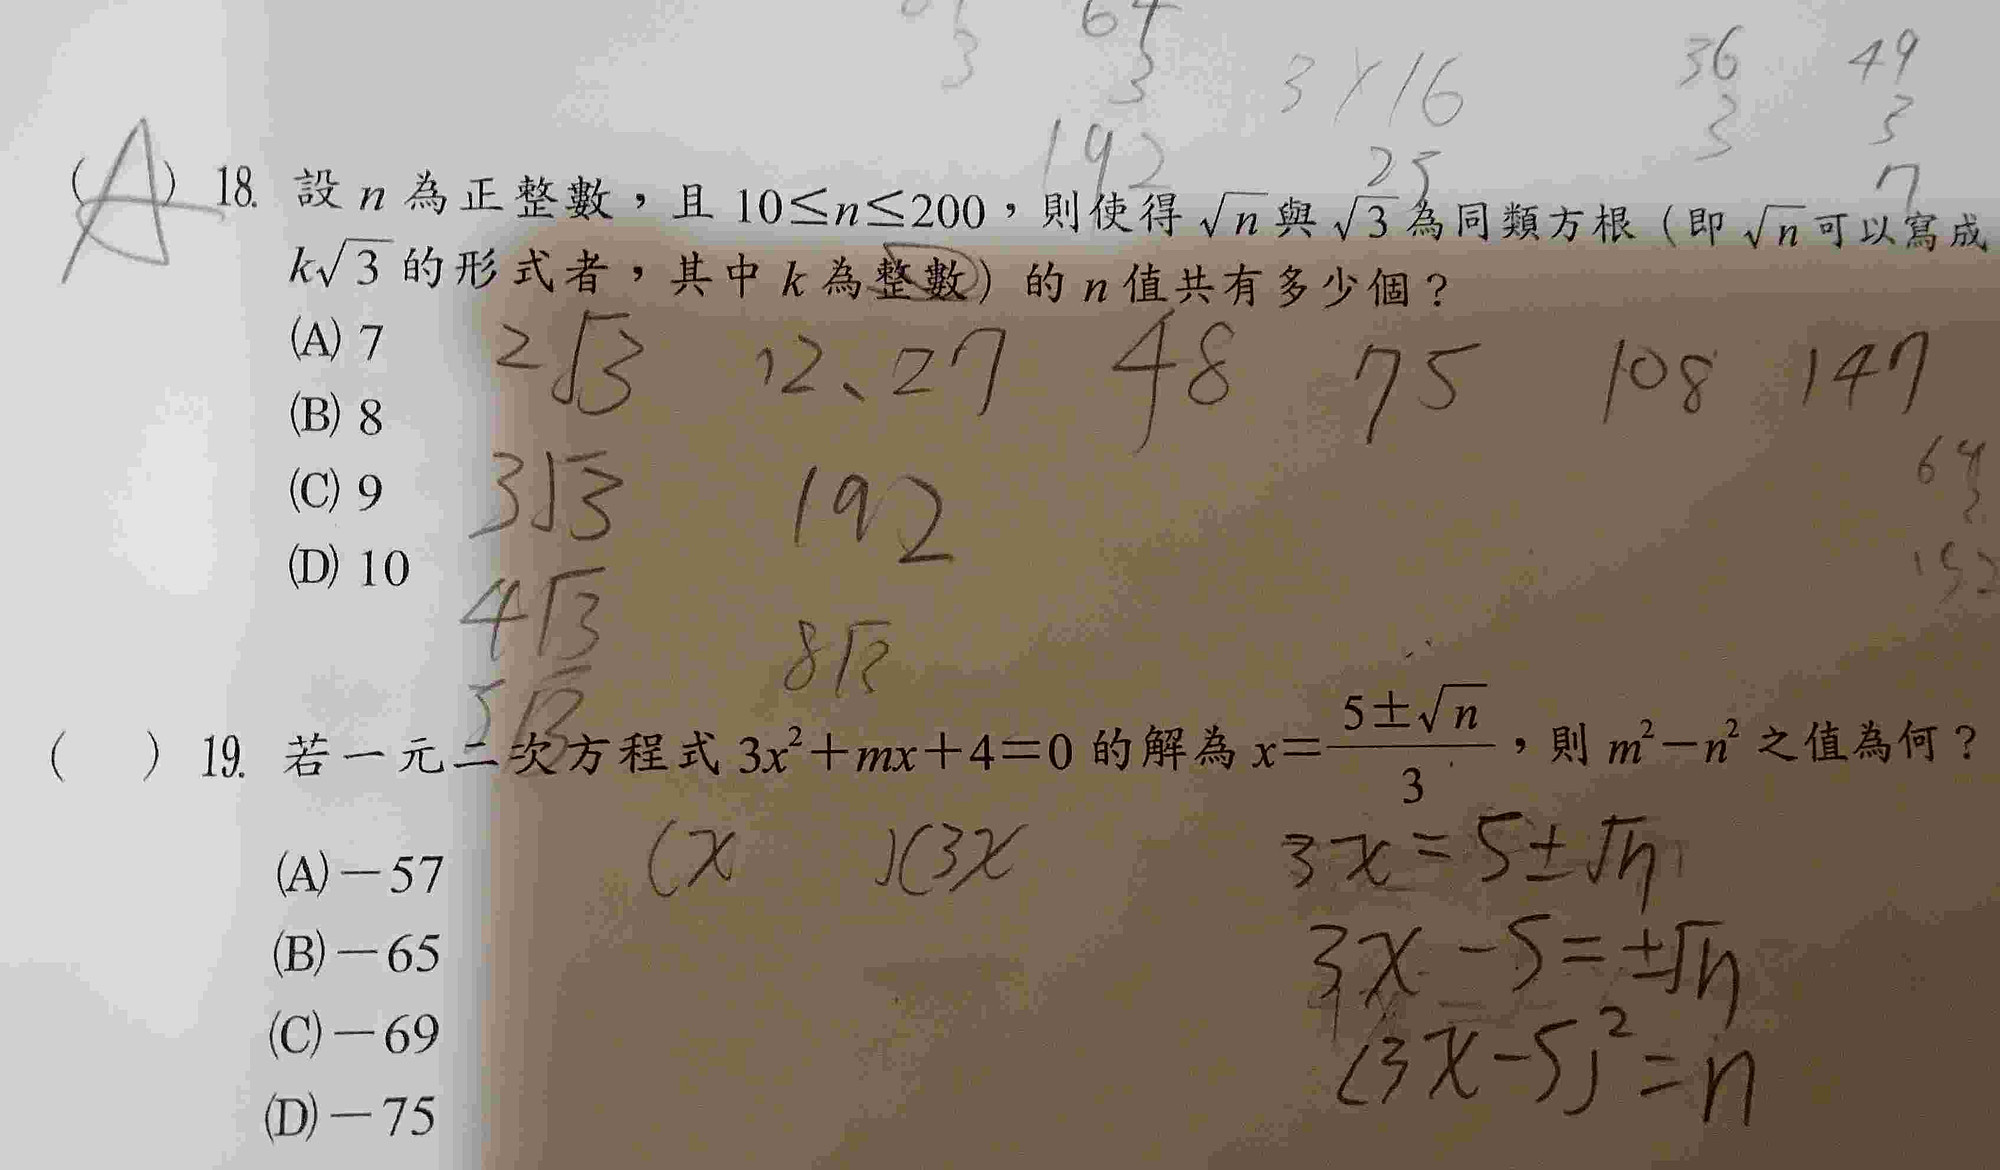 64
3 3 3×16 36 49
3 3
192 25 7
(A) 18. 設 n 為正整數，且 10≤n≤200，則使得 √n 與 √3 為同類方根（即 √n 可以寫成
k√3 的形式者，其中 k 為整數）的 n 值共有多少個？
(A) 7
2√3 12、27 48 75 108 147
(B) 8
64
(C) 9
3√3 192
(D) 10
4√3
8√3
5√3
( ) 19. 若一元二次方程式 3x²+mx+4=0 的解為 x=(5±√n)/3，則 m²−n² 之值為何？
(A)−57
(x )(3x 3x=5±√n
(B)−65
3x−5=±√n
(C)−69
(3x−5)²=n
(D)−75